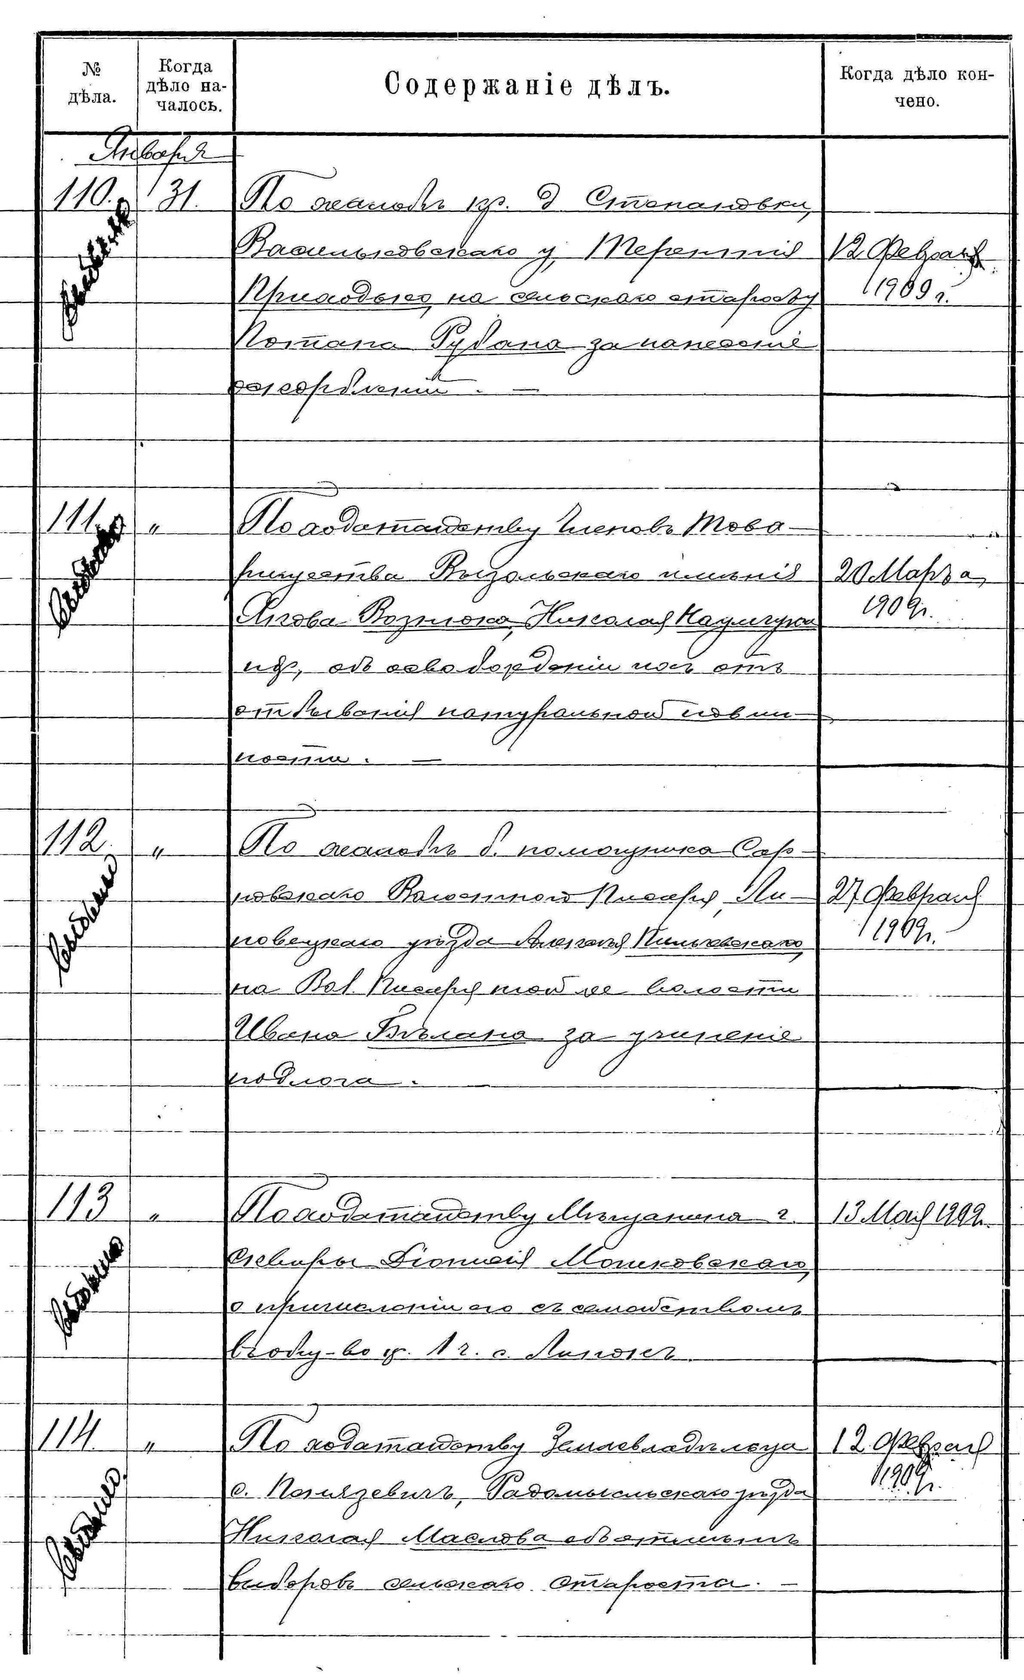 № дѣла.
Когда дѣло началось.
Содержаніе дѣлъ.
Когда дѣло кончено.
Января
110. 31. По жалобѣ кр. д. Степановки,
Васильковскаго у. Терентія
Приходько, на сельскаго старосту
Потапа Рубана за нанесеніе
оскорбленій. —
12 Февраля
1909 г.
111. „ По ходатайству Членовъ Това-
рищества Яхова Вознюка, Николая
и др., объ освобожденіи ихъ отъ
отбыванія натуральной повин-
ности. —
20 Марта
1909 г.
112. „ По жалобѣ б. помощника
Волостного Писаря, Ли-
повецкаго уѣзда
на Вол. Писаря той же волости
Ивана Бѣлана за учиненіе
подлога.
27 Февраля
1909 г.
113 „ По ходатайству Мѣщанина г.
Сквиры Діонисія Мошковскаго,
о причисленіи его съ семействомъ
13 Мая 1909 г.
114. „ По ходатайству Землевладѣльца
с. Радомысльскаго уѣзда
Николая Маслова объ отмѣнѣ
выборовъ сельскаго старосты. —
12 Февраля
1909 г.